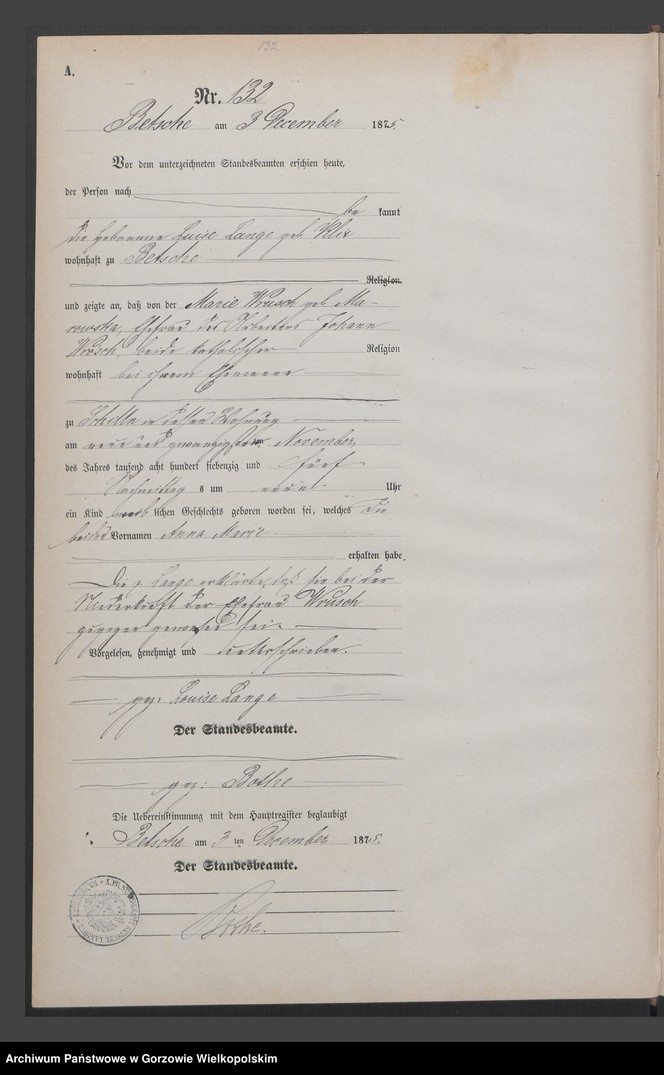 132
A.
Nr. 132
Betsche am 3 December 1875.
Vor dem unterzeichneten Standesbeamten erschien heute,
der Person nach
be kannt
die Hebamme Luise Lange geb. Klix
wohnhaft zu Betsche
Religion
und zeigte an, daß von der Marie Wrusch geb. Ma-
rowska, Ehefrau des Arbeiters Johann
Wrusch, beide katholischer Religion
wohnhaft bei ihrem Ehemanne
zu Schilln in dessen Wohnung
am neun und zwanzigsten November
des Jahres tausend acht hundert siebenzig und fünf
Nachmittag s um neun Uhr
ein Kind weib lichen Geschlechts geboren worden sei, welches die
beiden Vornamen Anna Marie
erhalten habe.
Die p. Lange erklärte, daß sie bei der
Niederkunft der Ehefrau Wrusch
zugegen gewesen sei.
Vorgelesen, genehmigt und unterschrieben.
gez: Louise Lange
Der Standesbeamte.
gez: Bothe
Die Uebereinstimmung mit dem Hauptregister beglaubigt
Betsche am 3 ten December 1875.
Der Standesbeamte.
Bothe.
Archiwum Państwowe w Gorzowie Wielkopolskim